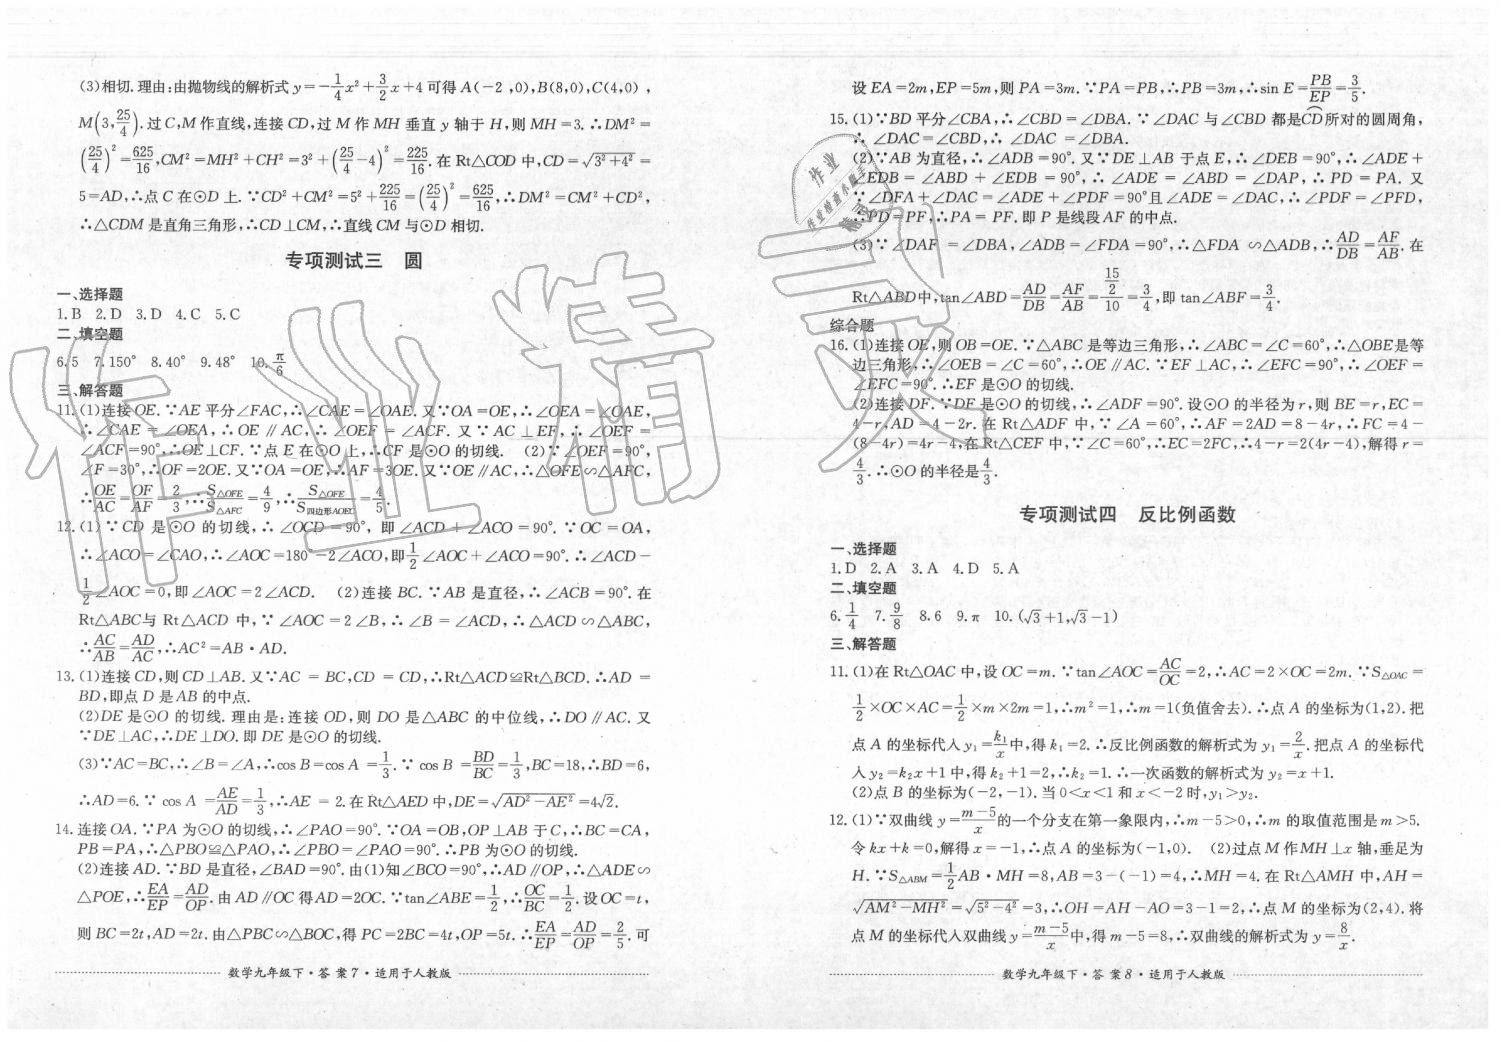 (3)相切.理由:由抛物线的解析式 y=-1/4x²+3/2x+4 可得 A(-2,0),B(8,0),C(4,0),
M(3,25/4).过C,M作直线,连接CD,过M作MH垂直y轴于H,则MH=3.∴DM²=
(25/4)²=625/16,CM²=MH²+CH²=3²+(25/4-4)²=225/16.在Rt△COD中,CD=√(3²+4²)=
5=AD,∴点C在⊙D上.∵CD²+CM²=5²+225/16=(25/4)²=625/16,∴DM²=CM²+CD²,
∴△CDM是直角三角形,∴CD⊥CM,∴直线CM与⊙D相切.
专项测试三 圆
一、选择题
1.B 2.D 3.D 4.C 5.C
二、填空题
6.5 7.150° 8.40° 9.48° 10.π/6
三、解答题
11.(1)连接OE.∵AE平分∠FAC,∴∠CAE=∠OAE.又∵OA=OE,∴∠OEA=∠OAE,
∴∠CAE=∠OEA,∴OE∥AC,∴∠OEF=∠ACF.又∵AC⊥EF,∴∠OEF=
∠ACF=90°,∴OE⊥CF.∵点E在⊙O上,∴CF是⊙O的切线. (2)∵∠OEF=90°,
∠F=30°,∴OF=2OE.又∵OA=OE,∴AF=3OE.又∵OE∥AC,∴△OFE∽△AFC,
∴OE/AC=OF/AF=2/3,∴S△OFE/S△AFC=4/9,∴S△OFE/S四边形AOEC=4/5.
12.(1)∵CD是⊙O的切线,∴∠OCD=90°,即∠ACD+∠ACO=90°.∵OC=OA,
∴∠ACO=∠CAO,∴∠AOC=180°-2∠ACO,即1/2∠AOC+∠ACO=90°.∴∠ACD-
1/2∠AOC=0,即∠AOC=2∠ACD. (2)连接BC.∵AB是直径,∴∠ACB=90°.在
Rt△ABC与Rt△ACD中,∵∠AOC=2∠B,∴∠B=∠ACD,∴△ACD∽△ABC,
∴AC/AB=AD/AC,∴AC²=AB·AD.
13.(1)连接CD,则CD⊥AB.又∵AC=BC,CD=CD,∴Rt△ACD≌Rt△BCD.∴AD=
BD,即点D是AB的中点.
(2)DE是⊙O的切线.理由是:连接OD,则DO是△ABC的中位线,∴DO∥AC.又
∵DE⊥AC,∴DE⊥DO.即DE是⊙O的切线.
(3)∵AC=BC,∴∠B=∠A,∴cos B=cos A=1/3.∵cos B=BD/BC=1/3,BC=18,∴BD=6,
∴AD=6.∵cos A=AE/AD=1/3,∴AE=2.在Rt△AED中,DE=√(AD²-AE²)=4√2.
14.连接OA.∵PA为⊙O的切线,∴∠PAO=90°.∵OA=OB,OP⊥AB于C,∴BC=CA,
PB=PA,∴△PBO≌△PAO,∴∠PBO=∠PAO=90°.∴PB为⊙O的切线.
(2)连接AD.∵BD是直径,∠BAD=90°.由(1)知∠BCO=90°,∴AD∥OP,∴△ADE∽
△POE,∴EA/EP=AD/OP.由AD∥OC得AD=2OC.∵tan∠ABE=1/2,∴OC/BC=1/2.设OC=t,
则BC=2t,AD=2t.由△PBC∽△BOC,得PC=2BC=4t,OP=5t.∴EA/EP=AD/OP=2/5.可
数学九年级下·答案7·适用于人教版
设EA=2m,EP=5m,则PA=3m.∵PA=PB,∴PB=3m,∴sin E=PB/EP=3/5.
15.(1)∵BD平分∠CBA,∴∠CBD=∠DBA.∵∠DAC与∠CBD都是CD所对的圆周角,
∴∠DAC=∠CBD,∴∠DAC=∠DBA.
(2)∵AB为直径,∴∠ADB=90°.又∵DE⊥AB于点E,∴∠DEB=90°,∴∠ADE+
∠EDB=∠ABD+∠EDB=90°,∴∠ADE=∠ABD=∠DAP,∴PD=PA.又
∵∠DFA+∠DAC=∠ADE+∠PDF=90°且∠ADE=∠DAC,∴∠PDF=∠PFD,
∴PD=PF,∴PA=PF.即P是线段AF的中点.
(3)∵∠DAF=∠DBA,∠ADB=∠FDA=90°,∴△FDA∽△ADB,∴AD/DB=AF/AB.在
Rt△ABD中,tan∠ABD=AD/DB=AF/AB=(15/2)/10=3/4,即tan∠ABF=3/4.
综合题
16.(1)连接OE,则OB=OE.∵△ABC是等边三角形,∴∠ABC=∠C=60°,∴△OBE是等
边三角形,∴∠OEB=∠C=60°,∴OE∥AC.∵EF⊥AC,∴∠EFC=90°,∴∠OEF=
∠EFC=90°.∴EF是⊙O的切线.
(2)连接DF.∵DF是⊙O的切线,∴∠ADF=90°.设⊙O的半径为r,则BE=r,EC=
4-r,AD=4-2r.在Rt△ADF中,∵∠A=60°,∴AF=2AD=8-4r,∴FC=4-
(8-4r)=4r-4,在Rt△CEF中,∵∠C=60°,∴EC=2FC,∴4-r=2(4r-4),解得r=
4/3.∴⊙O的半径是4/3.
专项测试四 反比例函数
一、选择题
1.D 2.A 3.A 4.D 5.A
二、填空题
6.1/4 7.9/8 8.6 9.π 10.(√3+1,√3-1)
三、解答题
11.(1)在Rt△OAC中,设OC=m.∵tan∠AOC=AC/OC=2,∴AC=2×OC=2m.∵S△OAC=
1/2×OC×AC=1/2×m×2m=1,∴m²=1,∴m=1(负值舍去).∴点A的坐标为(1,2).把
点A的坐标代入y₁=k₁/x中,得k₁=2.∴反比例函数的解析式为y₁=2/x.把点A的坐标代
入y₂=k₂x+1中,得k₂+1=2,∴k₂=1.∴一次函数的解析式为y₂=x+1.
(2)点B的坐标为(-2,-1).当0<x<1和x<-2时,y₁>y₂.
12.(1)∵双曲线y=(m-5)/x的一个分支在第一象限内,∴m-5>0,∴m的取值范围是m>5.
令kx+k=0,解得x=-1,∴点A的坐标为(-1,0). (2)过点M作MH⊥x轴,垂足为
H.∵S△ABM=1/2AB·MH=8,AB=3-(-1)=4,∴MH=4.在Rt△AMH中,AH=
√(AM²-MH²)=√(5²-4²)=3,∴OH=AH-AO=3-1=2,∴点M的坐标为(2,4).将
点M的坐标代入双曲线y=(m-5)/x中,得m-5=8,∴双曲线的解析式为y=8/x.
数学九年级下·答案8·适用于人教版
作业精灵